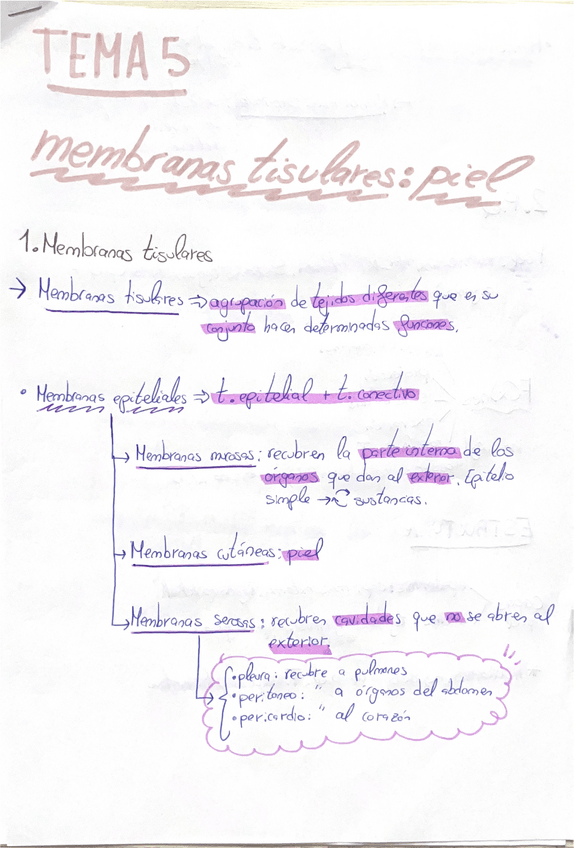 TEMA 5
membranas tisulares: piel
1. Membranas tisulares
→ Membranas tisulares ⇒ agrupación de tejidos diferentes que en su
conjunto hacen determinadas funciones.
• Membranas epiteliales ⇒ t. epitelial + t. conectivo
→ Membranas mucosas: recubren la parte interna de los
órganos que dan al exterior. Epitelio
simple → sustancas.
→ Membranas cutáneas: piel
→ Membranas serosas: recubren cavidades que no se abren al
exterior.
• pleura: recubre a pulmones
• peritoneo: " a órganos del abdomen
• pericardio: " al corazón